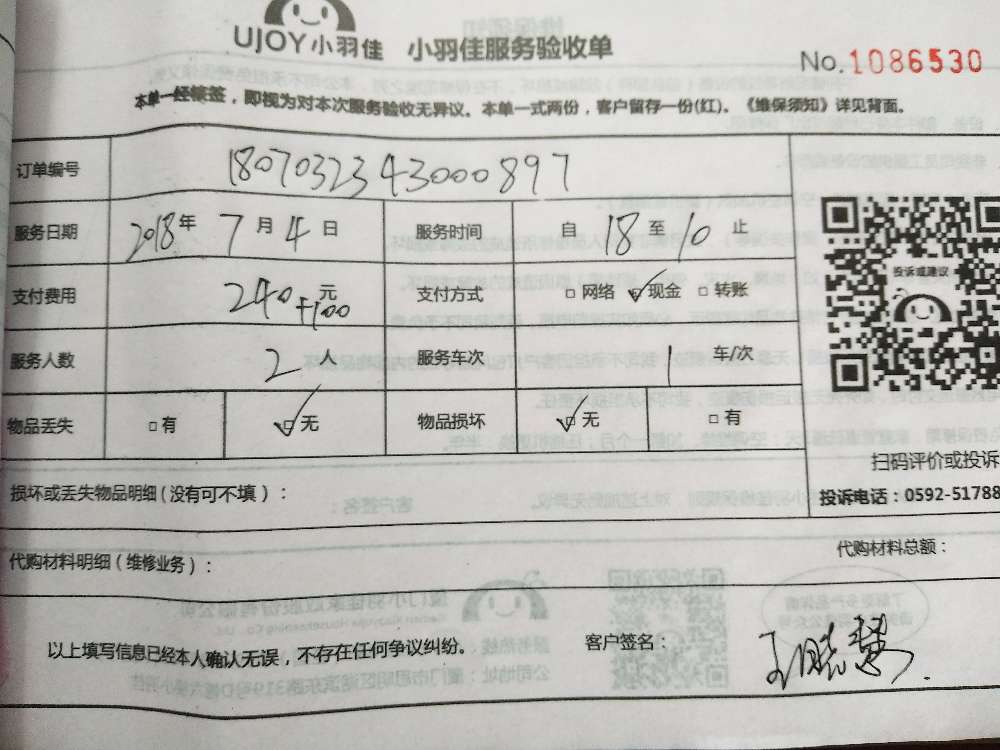 UJOY小羽佳 小羽佳服务验收单
No.1086530
本单一经核签，即视为对本次服务验收无异议。本单一式两份，客户留存一份(红)。《维保须知》详见背面。
订单编号 1807032343000897
服务日期 2018年7月4日 服务时间 自18至10止
支付费用 240+100元 支付方式 □网络 ☑现金 □转账
服务人数 2人 服务车次 1车/次
物品丢失 □有 ☑无 物品损坏 ☑无 □有
投诉或建议
扫码评价或投诉
损坏或丢失物品明细（没有可不填）：
投诉电话：0592-51788
代购材料明细（维修业务）： 代购材料总额：
以上填写信息已经本人确认无误，不存在任何争议纠纷。 客户签名： 王晓慧